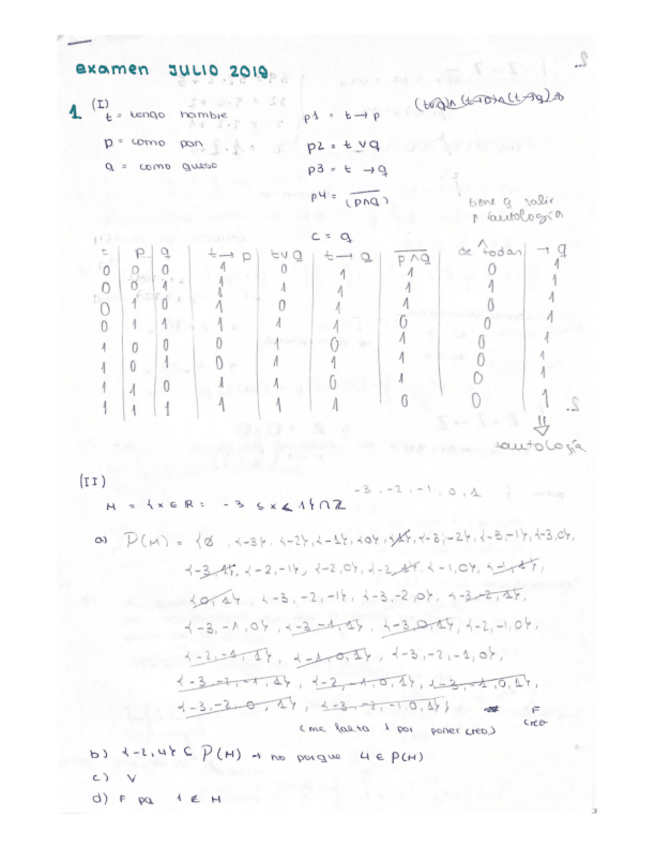 examen JULIO 2019
1. (I)
t = tengo hambre p1 = t → p
p = como pan p2 = t ∨ q
q = como queso p3 = t → q
p4 = (p∧q)
tiene q salir
tautología
c = q
t p q t → p t∨q t → q p∧q de todan → q
0 0 0 1 0 1 1 0 1
0 0 1 1 1 1 1 1 1
0 1 0 1 0 1 1 0 1
0 1 1 1 1 1 0 0 1
1 0 0 0 1 0 1 0 1
1 0 1 0 1 1 1 0 1
1 1 0 1 1 0 1 0 1
1 1 1 1 1 1 0 0 1
⇓
tautología
(II)
-3, -2, -1, 0, 1
M = {x ∈ R : -3 ≤ x < 1} ∩ Z
a) P(M) = {∅, {-3}, {-2}, {-1}, {0}, {1}, {-3,-2}, {-3,-1}, {-3,0},
{-3,1}, {-2,-1}, {-2,0}, {-2,1}, {-1,0}, {-1,1},
{0,1}, {-3,-2,-1}, {-3,-2,0}, {-3,-2,1},
{-3,-1,0}, {-3,-1,1}, {-3,0,1}, {-2,-1,0},
{-2,-1,1}, {-1,0,1}, {-3,-2,-1,0},
{-3,-2,-1,1}, {-2,-1,0,1}, {-3,-1,0,1},
{-3,-2,0,1}, {-3,-2,-1,0,1}} F
(me falta 1 por poner creo) creo
b) {-2,4} ⊂ P(M) → no porque 4 ∈ P(M)
c) V
d) F pq 1 ∉ M